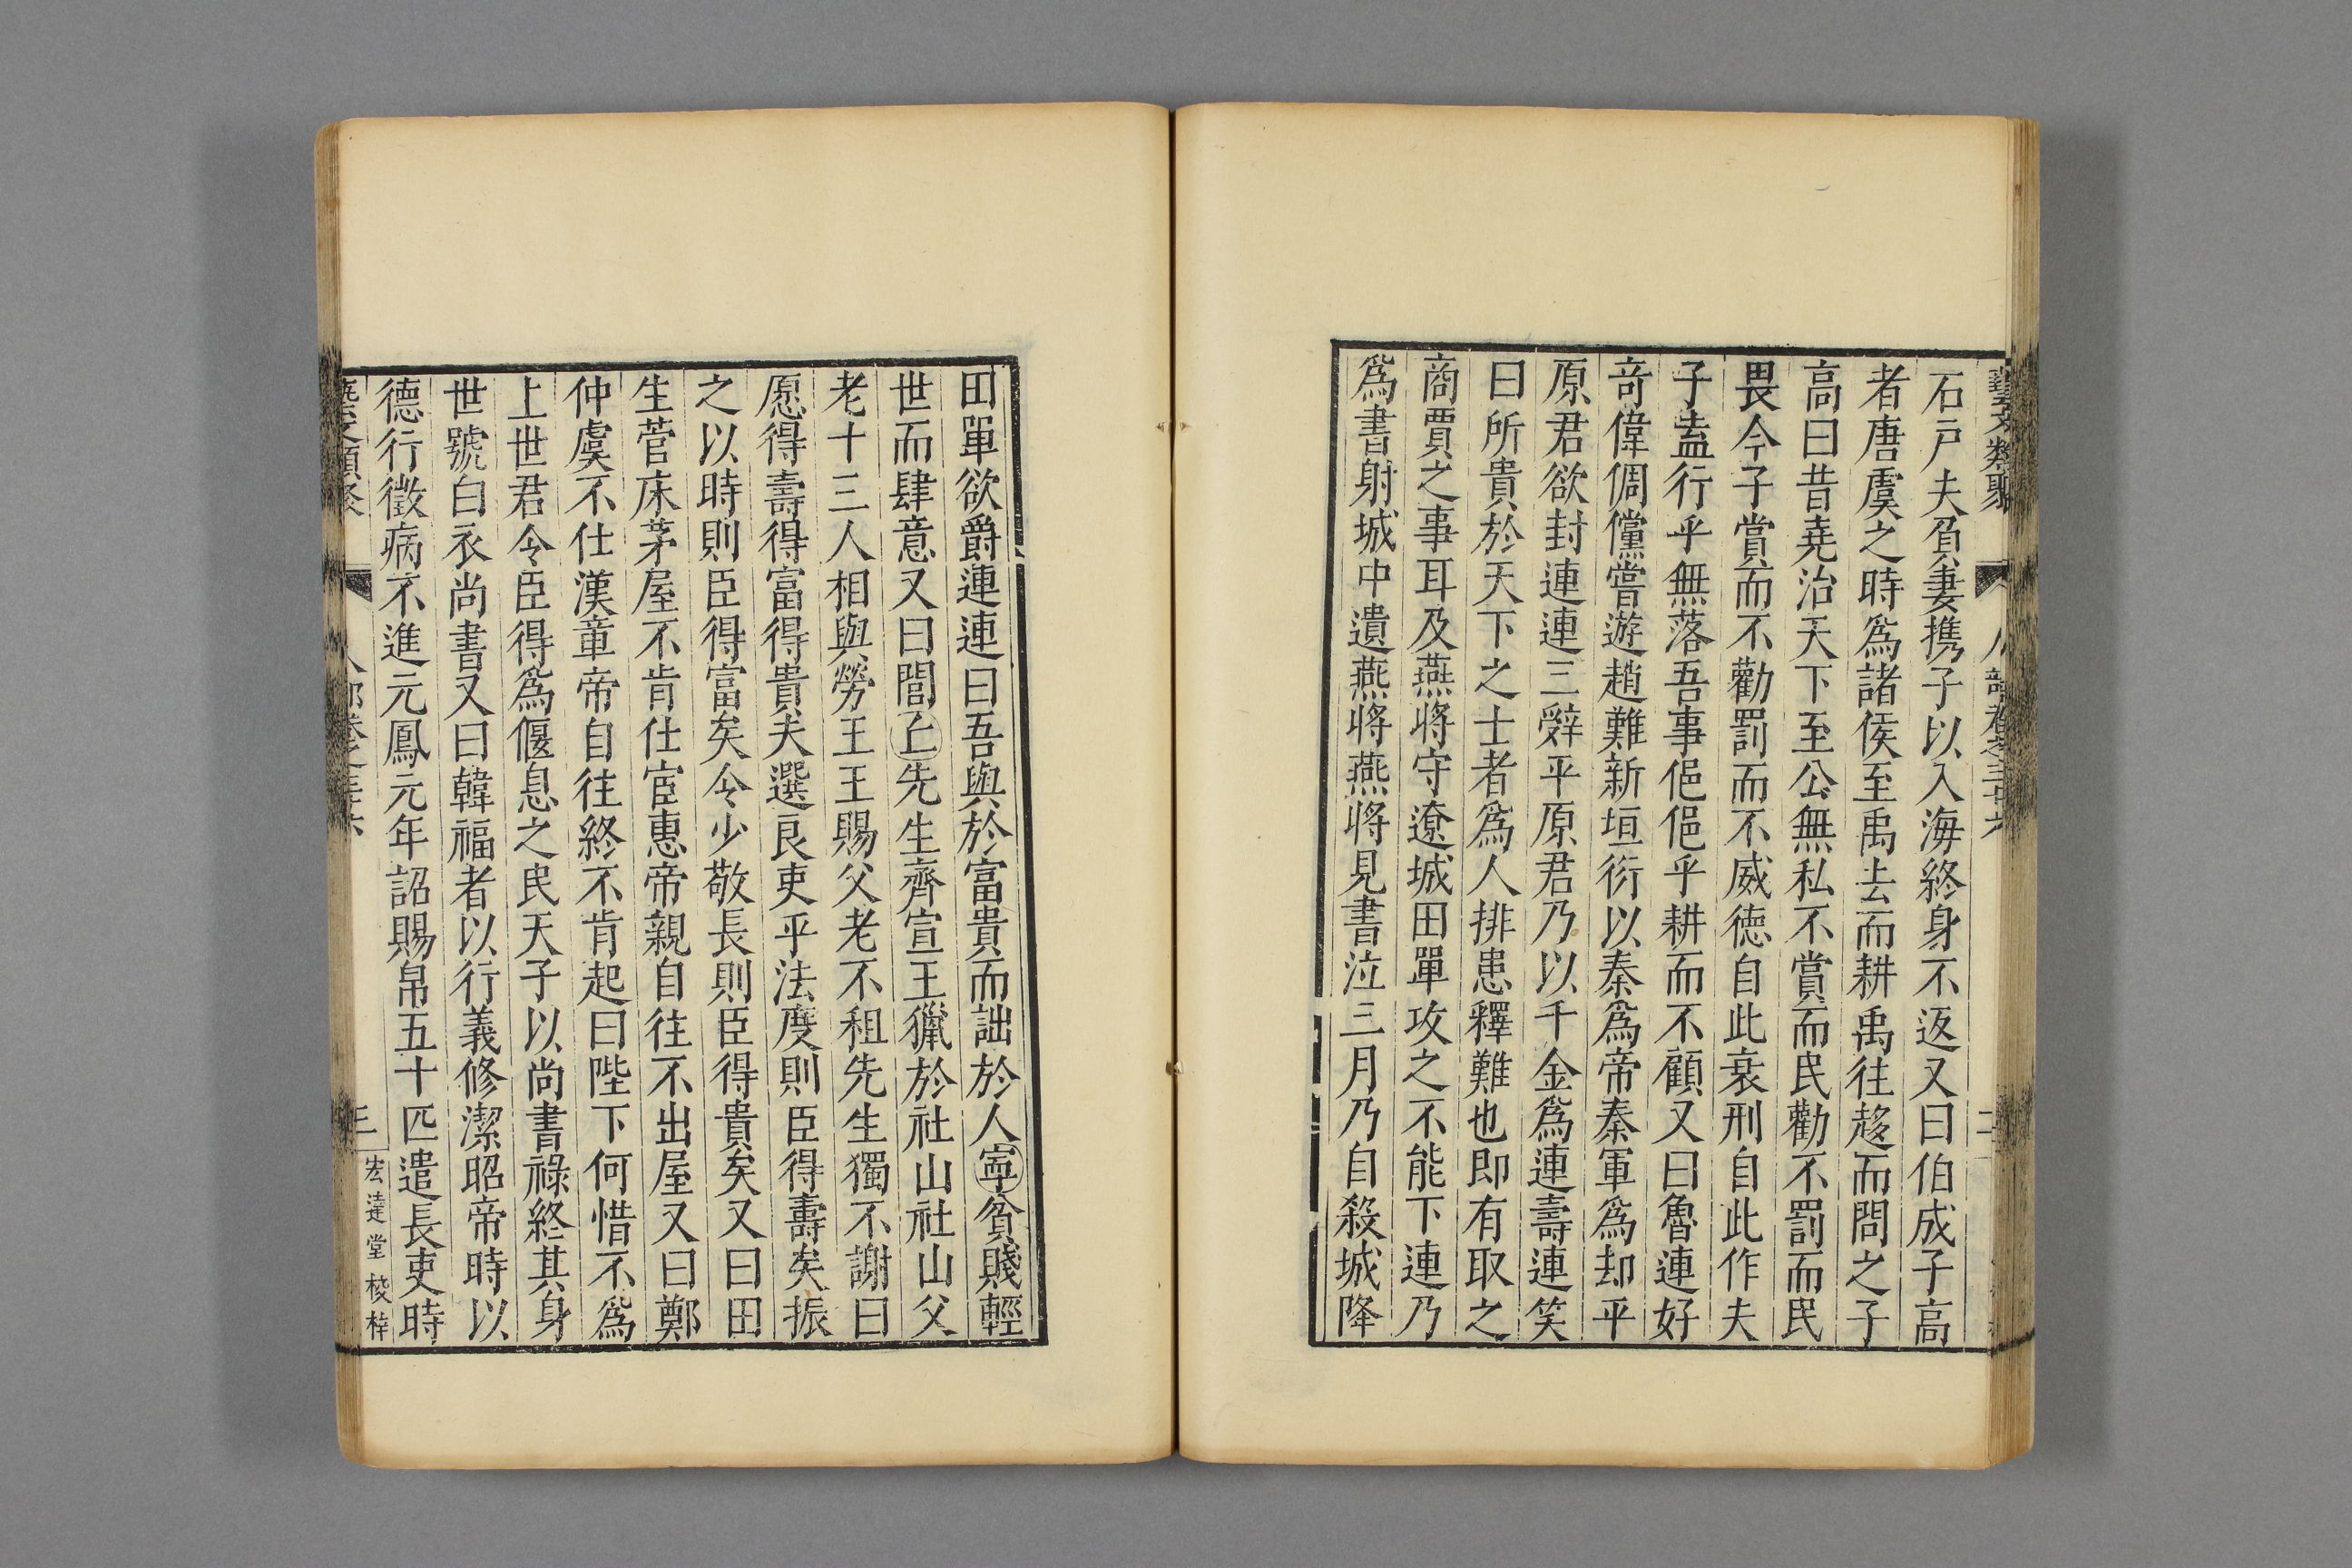 藝文類聚 人部卷之三十六 二
石戸夫負妻携子以入海終身不返又曰伯成子高
者唐虞之時爲諸侯至禹去而耕禹往趍而問之子
高曰昔堯治天下至公無私不賞而民勸不罰而民
畏今子賞而不勸罰而不威德自此衰刑自此作夫
子盍行乎無落吾事俋俋乎耕而不顧又曰魯連好
竒偉倜儻嘗遊趙難新垣衍以秦爲帝秦軍爲却平
原君欲封連連三辤平原君乃以千金爲連壽連笑
曰所貴於天下之士者爲人排患釋難也即有取之
商賈之事耳及燕將守遼城田單攻之不能下連乃
爲書射城中遺燕將燕將見書泣三月乃自殺城降
田單欲爵連連曰吾與於富貴而詘於人寕貧賤輕
世而肆意又曰閭丘先生齊宣王獵於社山社山父
老十三人相與勞王王賜父老不租先生獨不謝曰
愿得壽得富得貴夫選良吏乎法度則臣得壽矣振
之以時則臣得富矣令少敬長則臣得貴矣又曰田
生菅床茅屋不肯仕宦惠帝親自往不出屋又曰鄭
仲虞不仕漢章帝自往終不肯起曰陛下何惜不爲
上世君令臣得爲偃息之民天子以尚書祿終其身
世號白衣尚書又曰韓福者以行義修潔昭帝時以
德行徵病不進元鳳元年詔賜帛五十匹遣長吏時
藝文類聚 人部卷之三十六 三 宏達堂棱梓